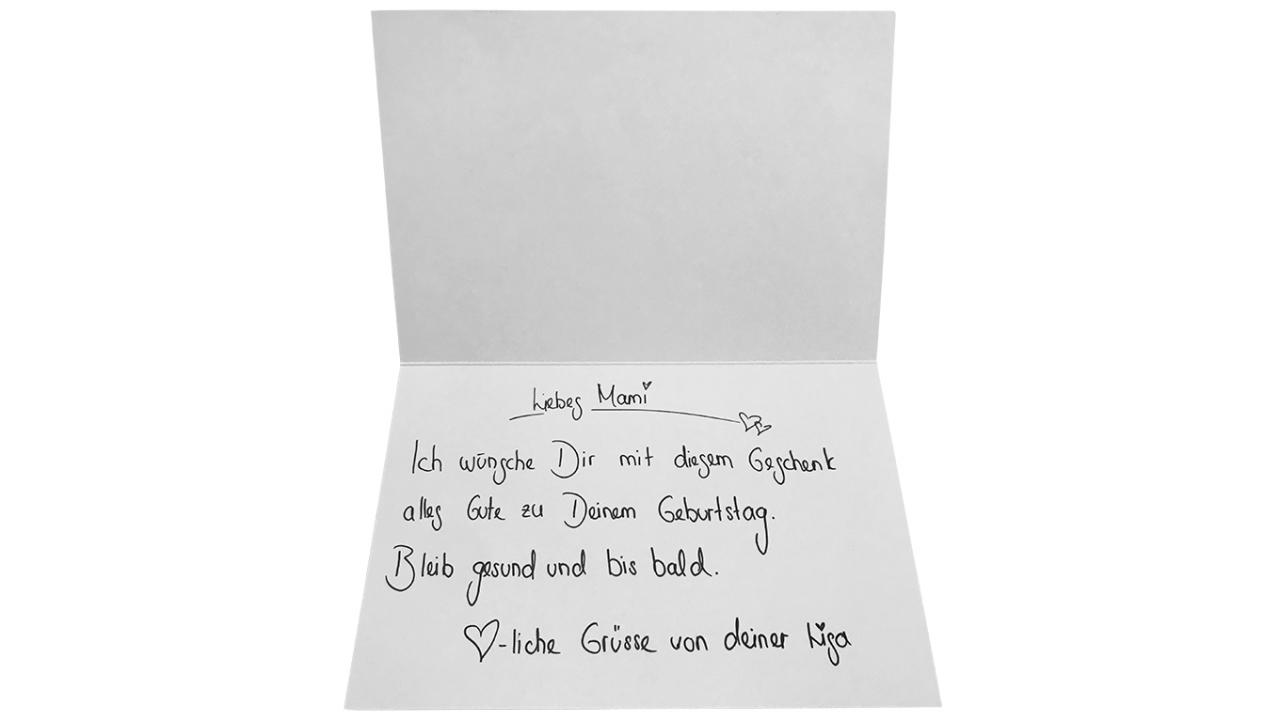 Liebes Mami
Ich wünsche Dir mit diesem Geschenk
alles Gute zu Deinem Geburtstag.
Bleib gesund und bis bald.
♡-liche Grüsse von deiner Lisa